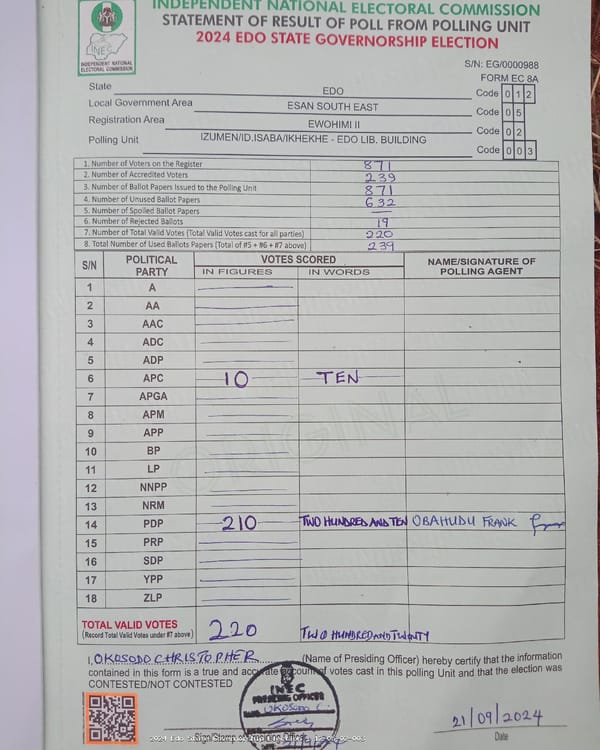 INDEPENDENT NATIONAL ELECTORAL COMMISSION
STATEMENT OF RESULT OF POLL FROM POLLING UNIT
2024 EDO STATE GOVERNORSHIP ELECTION
INEC
INDEPENDENT NATIONAL
ELECTORAL COMMISSION
S/N: EG/0000988
FORM EC 8A
State EDO Code 0 1 2
Local Government Area ESAN SOUTH EAST Code 0 5
Registration Area EWOHIMI II Code 0 2
Polling Unit IZUMEN/ID.ISABA/IKHEKHE - EDO LIB. BUILDING Code 0 0 3
1. Number of Voters on the Register 871
2. Number of Accredited Voters 239
3. Number of Ballot Papers Issued to the Polling Unit 871
4. Number of Unused Ballot Papers 632
5. Number of Spoiled Ballot Papers —
6. Number of Rejected Ballots 19
7. Number of Total Valid Votes (Total Valid Votes cast for all parties) 220
8. Total Number of Used Ballots Papers (Total of #5 + #6 + #7 above) 239
S/N POLITICAL PARTY VOTES SCORED NAME/SIGNATURE OF POLLING AGENT
IN FIGURES IN WORDS
1 A
2 AA
3 AAC
4 ADC
5 ADP
6 APC 10 TEN
7 APGA
8 APM
9 APP
10 BP
11 LP
12 NNPP
13 NRM
14 PDP 210 TWO HUNDRED AND TEN OBAHUDU FRANK
15 PRP
16 SDP
17 YPP
18 ZLP
ORIGINAL
TOTAL VALID VOTES 220 TWO HUNDRED AND TWENTY
(Record Total Valid Votes under #7 above)
I, OKOSODO CHRISTOPHER (Name of Presiding Officer) hereby certify that the information
contained in this form is a true and accurate account of votes cast in this polling Unit and that the election was
CONTESTED/NOT CONTESTED
INEC
PRESIDING OFFICER
OKOSODO C.
21/09/2024
Date